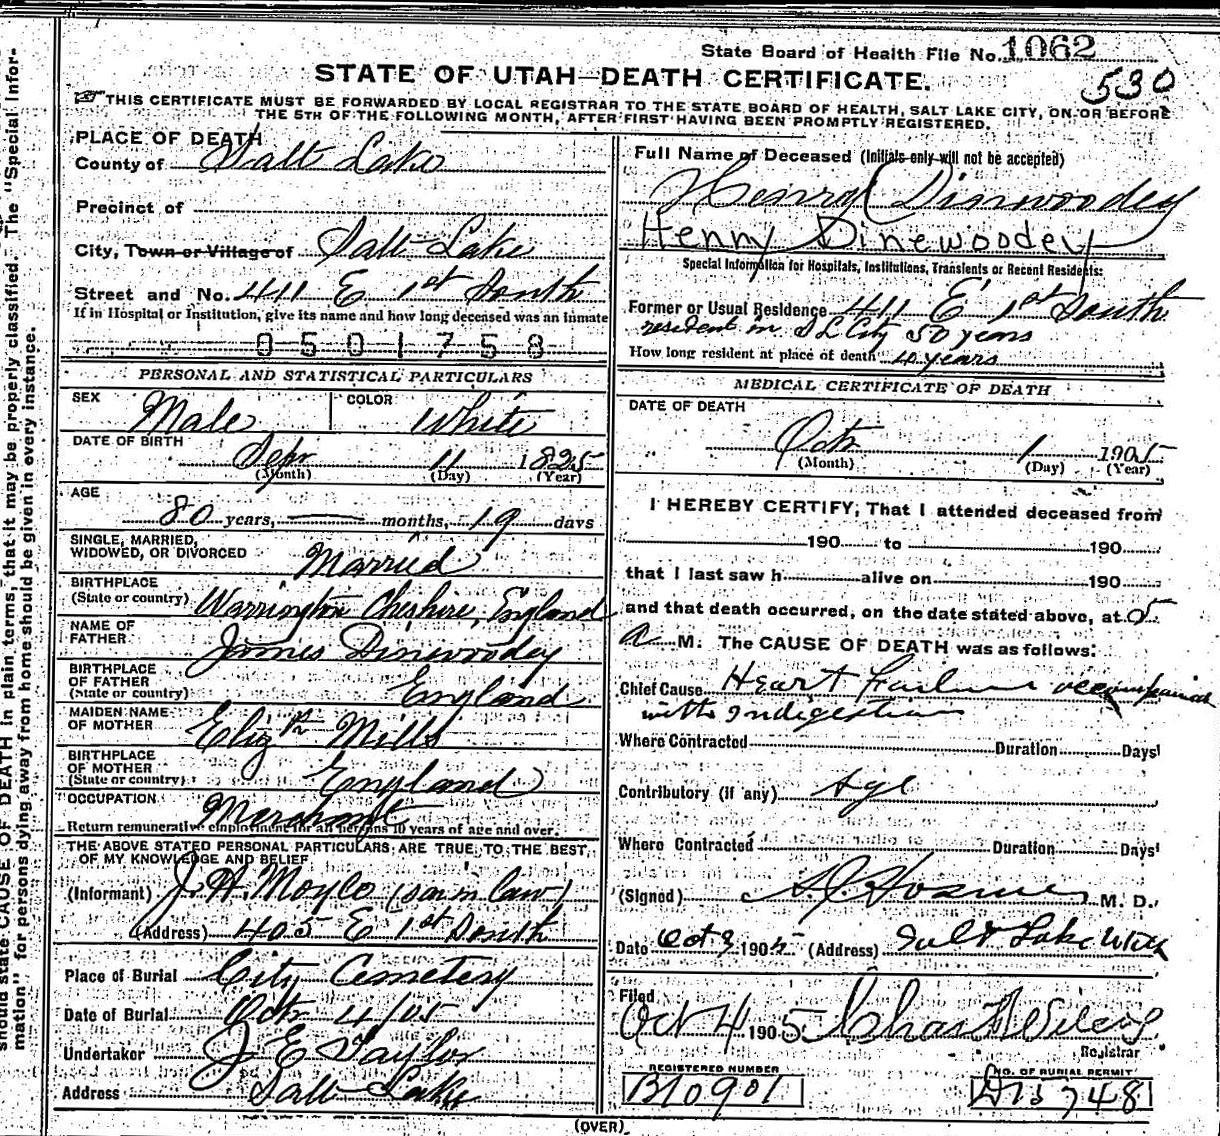 State Board of Health File No. 1062
530
STATE OF UTAH—DEATH CERTIFICATE.
THIS CERTIFICATE MUST BE FORWARDED BY LOCAL REGISTRAR TO THE STATE BOARD OF HEALTH, SALT LAKE CITY, ON OR BEFORE
THE 5TH OF THE FOLLOWING MONTH, AFTER FIRST HAVING BEEN PROMPTLY REGISTERED.
PLACE OF DEATH
County of Salt Lake
Precinct of
City, Town or Village of Salt Lake
Street and No. 411 E 1st South
If in Hospital or Institution, give its name and how long deceased was an inmate
0501758
PERSONAL AND STATISTICAL PARTICULARS
SEX Male COLOR White
DATE OF BIRTH
Sepr 11 1825
(Month) (Day) (Year)
AGE
80 years, — months, 19 days
SINGLE, MARRIED,
WIDOWED, OR DIVORCED Married
BIRTHPLACE
(State or country) Warrington Cheshire, England
NAME OF
FATHER James Dinwoodey
BIRTHPLACE
OF FATHER
(State or country) England
MAIDEN NAME
OF MOTHER Elizth Mills
BIRTHPLACE
OF MOTHER
(State or country) England
OCCUPATION Merchant
Return remunerative employment for all persons 10 years of age and over.
THE ABOVE STATED PERSONAL PARTICULARS ARE TRUE TO THE BEST
OF MY KNOWLEDGE AND BELIEF
(Informant) J. H. Moyle (son in law)
(Address) 405 E 1st South
Place of Burial City Cemetery
Date of Burial Octr 4/05
Undertaker J E Taylor
Address Salt Lake
Full Name of Deceased (Initials only will not be accepted)
Henry Dinwoodey
Henny Dinewoodey
Special Information for Hospitals, Institutions, Transients or Recent Residents:
Former or Usual Residence 411 E 1st South
resident in S L City 50 years
How long resident at place of death 40 years
MEDICAL CERTIFICATE OF DEATH
DATE OF DEATH
Octr 1 1905
(Month) (Day) (Year)
I HEREBY CERTIFY, That I attended deceased from
190 to 190
that I last saw h alive on 190
and that death occurred, on the date stated above, at 5
a M. The CAUSE OF DEATH was as follows:
Chief Cause Heart Failure accompanied
with Indigestion
Where Contracted Duration Days
Contributory (if any) Age
Where Contracted Duration Days
(Signed) M. D.
Date Oct 3 1905 (Address) Salt Lake Utah
Filed
Oct 4 1905 Chas
Registrar
REGISTERED NUMBER
B10901
NO. OF BURIAL PERMIT
D15748
(OVER)
should state CAUSE OF DEATH in plain terms, that it may be properly classified. The "Special Infor-
mation" for persons dying away from home should be given in every instance.